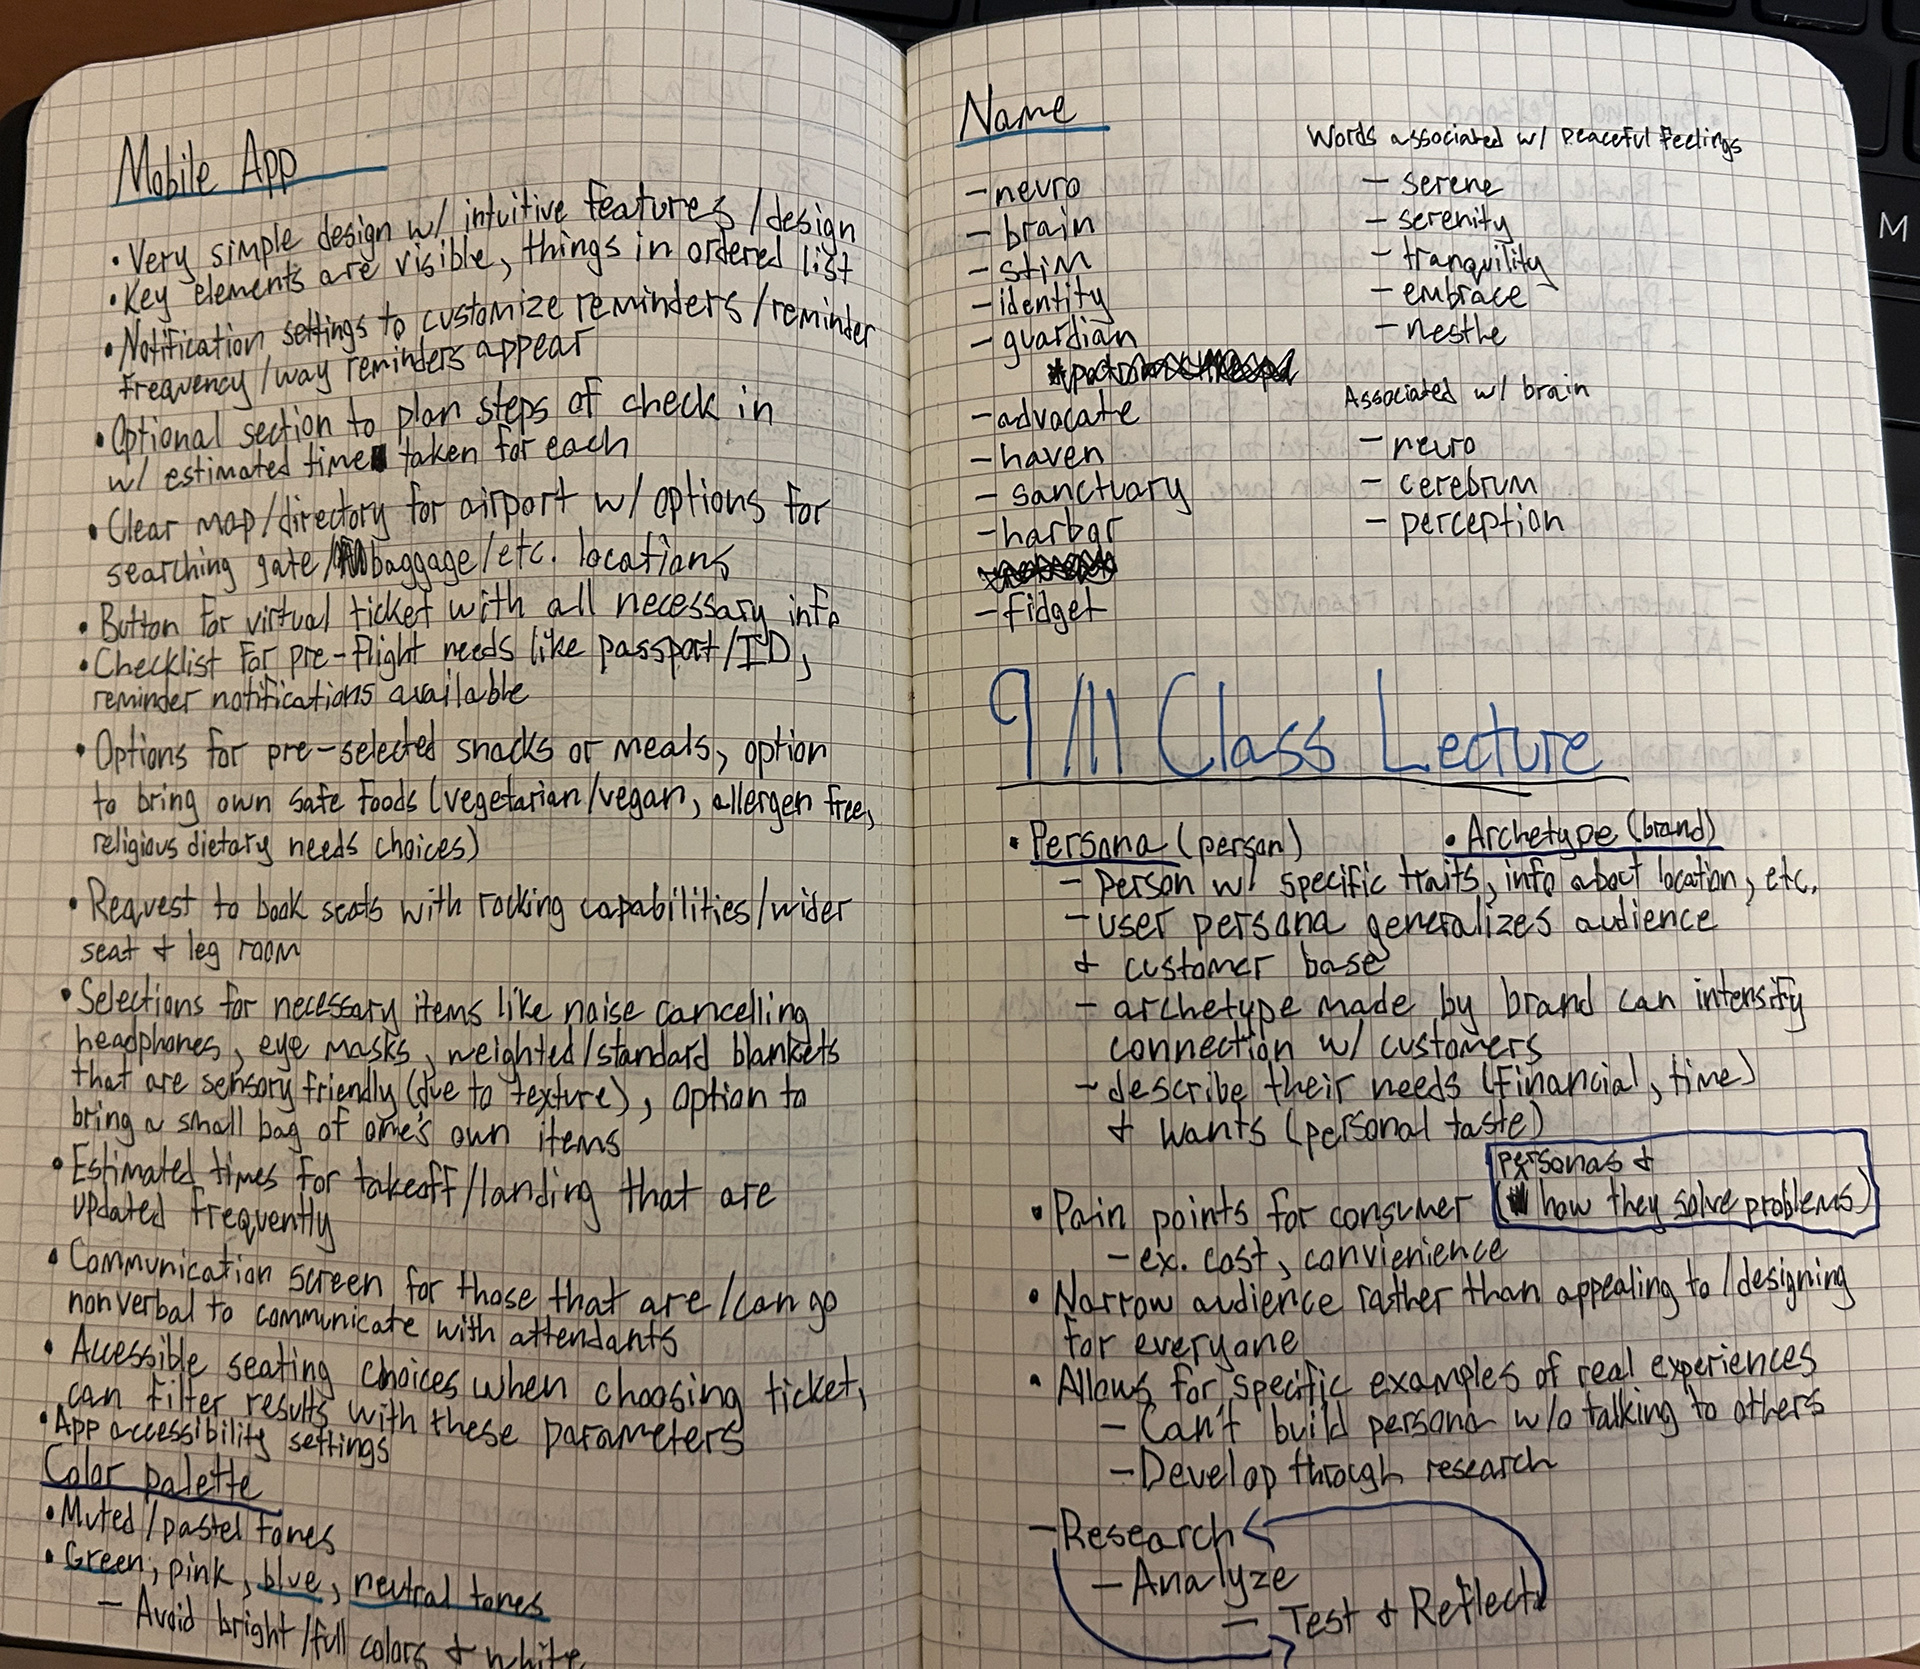 Mobile App
• Very simple design w/ intuitive features/design
• Key elements are visible, things in ordered list
• Notification settings to customize reminders/reminder
frequency/way reminders appear
• Optional section to plan steps of check in
w/ estimated time taken for each
• Clear map/directory for airport w/ options for
searching gate/baggage/etc. locations
• Button for virtual ticket with all necessary info
• Checklist for pre-flight needs like passport/ID,
reminder notifications available
• Options for pre-selected snacks or meals, option
to bring own safe foods (vegetarian/vegan, allergen free,
religious dietary needs choices)
• Request to book seats with rocking capabilities/wider
seat & leg room
• Selections for necessary items like noise cancelling
headphones, eye masks, weighted/standard blankets
that are sensory friendly (due to texture), option to
bring a small bag of one's own items
• Estimated times for takeoff/landing that are
updated frequently
• Communication screen for those that are/can go
nonverbal to communicate with attendants
• Accessible seating choices when choosing ticket,
can filter results with these parameters
• App accessibility settings
Color palette
• Muted/pastel tones
• Green, pink, blue, neutral tones
- Avoid bright/full colors & white
Name
- neuro
- brain
- stim
- identity
- guardian
- advocate
- haven
- sanctuary
- harbor
- fidget
Words associated w/ peaceful feelings
- serene
- serenity
- tranquility
- embrace
- nesthe
Associated w/ brain
- neuro
- cerebrum
- perception
9/11 Class Lecture
• Persona (person)
• Archetype (brand)
- person w/ specific traits, info about location, etc.
- user persona generalizes audience
& customer base
- archetype made by brand can intensify
connection w/ customers
- describe their needs (financial, time)
& wants (personal taste)
personas &
• Pain points for consumer (how they solve problems)
- ex. cost, convienience
• Narrow audience rather than appealing to/designing
for everyone
• Allows for specific examples of real experiences
- Can't build persona w/o talking to others
- Develop through research
- Research
- Analyze
- Test & Reflect